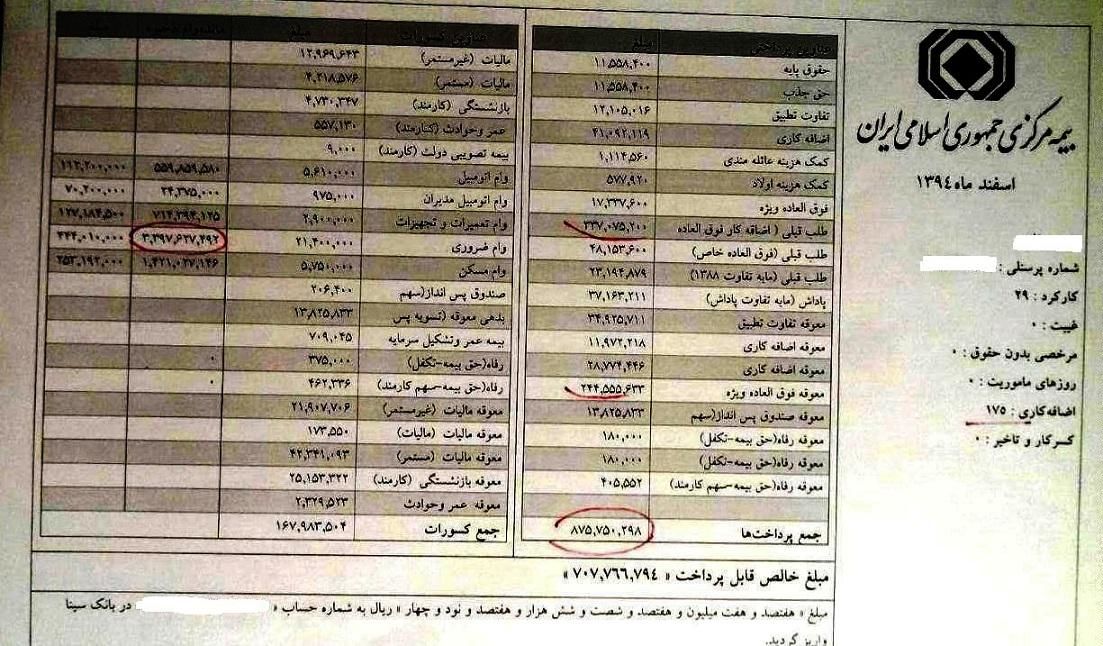 بیمه مرکزی جمهوری اسلامی ایران
اسفند ماه ۱۳۹۴
شماره پرسنلی :
کارکرد : ۲۹
غیبت : ۰
مرخصی بدون حقوق : ۰
روزهای ماموریت : ۰
اضافه‌کاری : ۱۷۵
کسر کار و تاخیر : ۰
عناوین پرداختی مبلغ
حقوق پایه ۱۱,۵۵۸,۴۰۰
حق جذب ۱۱,۵۵۸,۴۰۰
تفاوت تطبیق ۱۲,۱۰۵,۰۱۶
اضافه کاری ۴۱,۰۹۲,۱۱۹
کمک هزینه عائله مندی ۱,۱۱۴,۵۶۰
کمک هزینه اولاد ۵۷۷,۹۲۰
فوق العاده ویژه ۱۷,۳۳۷,۶۰۰
طلب قبلی ( اضافه کار فوق العاده ۳۳۷,۰۷۵,۲۰۰
طلب قبلی (فوق العاده خاص) ۴۸,۱۵۳,۶۰۰
طلب قبلی (مابه تفاوت ۱۳۸۸) ۲۳,۱۹۴,۸۷۹
پاداش (مابه تفاوت پاداش) ۳۷,۱۶۳,۲۱۱
معوقه تفاوت تطبیق ۳۴,۹۲۵,۷۱۱
معوقه اضافه کاری ۱۱,۹۷۲,۲۱۸
معوقه اضافه کاری ۲۸,۷۷۴,۴۴۶
معوقه فوق العاده ویژه ۲۴۴,۵۵۵,۶۳۳
معوقه صندوق پس انداز(سهم ۱۳,۸۲۵,۸۳۳
معوقه رفاه(حق بیمه-تکفل) ۱۸۰,۰۰۰
معوقه رفاه(حق بیمه-تکفل) ۱۸۰,۰۰۰
معوقه رفاه(حق بیمه-سهم کارمند) ۴۰۵,۵۵۲
جمع پرداخت‌ها ۸۷۵,۷۵۰,۲۹۸
عناوین کسورات مبلغ
مالیات (غیرمستمر) ۱۲,۹۶۹,۶۴۳
مالیات (مستمر) ۴,۲۱۸,۵۷۶
بازنشستگی (کارمند) ۴,۷۳۰,۳۴۷
عمر وحوادث (کارمند) ۵۵۷,۱۳۰
بیمه تصویبی دولت (کارمند) ۹,۰۰۰
وام اتومبیل ۵,۶۱۰,۰۰۰ ۵۵۹,۸۵۹,۵۸۰ ۱۱۲,۲۰۰,۰۰۰
وام اتومبیل مدیران ۹۷۵,۰۰۰ ۲۴,۳۷۵,۰۰۰ ۷۰,۲۰۰,۰۰۰
وام تعمیرات و تجهیزات ۲,۹۰۰,۰۰۰ ۷۱۴,۳۹۴,۱۲۵ ۱۲۷,۱۸۴,۵۰۰
وام ضروری ۲۱,۴۰۰,۰۰۰ ۳,۳۹۷,۶۲۷,۴۹۲ ۳۴۴,۰۱۰,۰۰۰
وام مسکن ۵,۷۵۰,۰۰۰ ۱,۴۲۱,۰۲۷,۱۴۶ ۲۵۳,۱۹۲,۰۰۰
صندوق پس انداز(سهم ۲۰۶,۴۰۰
بدهی معوقه (تسویه پس ۱۳,۸۲۵,۸۳۳
بیمه عمر وتشکیل سرمایه ۷۰۹,۰۴۵
رفاه(حق بیمه-تکفل) ۳۷۵,۰۰۰ ۰
رفاه(حق بیمه-سهم کارمند) ۴۶۲,۳۳۶ ۰
معوقه مالیات (غیرمستمر) ۲۱,۹۰۷,۷۰۶
معوقه مالیات (مالیات) ۱۷۳,۵۵۰
معوقه مالیات (مستمر) ۴۲,۳۴۱,۰۹۳
معوقه بازنشستگی (کارمند) ۲۵,۱۵۳,۳۲۲
معوقه عمر وحوادث ۲,۳۲۹,۵۲۳
جمع کسورات ۱۶۷,۹۸۳,۵۰۴
مبلغ خالص قابل پرداخت « ۷۰۷,۷۶۶,۷۹۴ »
مبلغ « هفتصد و هفت میلیون و هفتصد و شصت و شش هزار و هفتصد و نود و چهار » ریال به شماره حساب « در بانک سینا
واریز گردید.